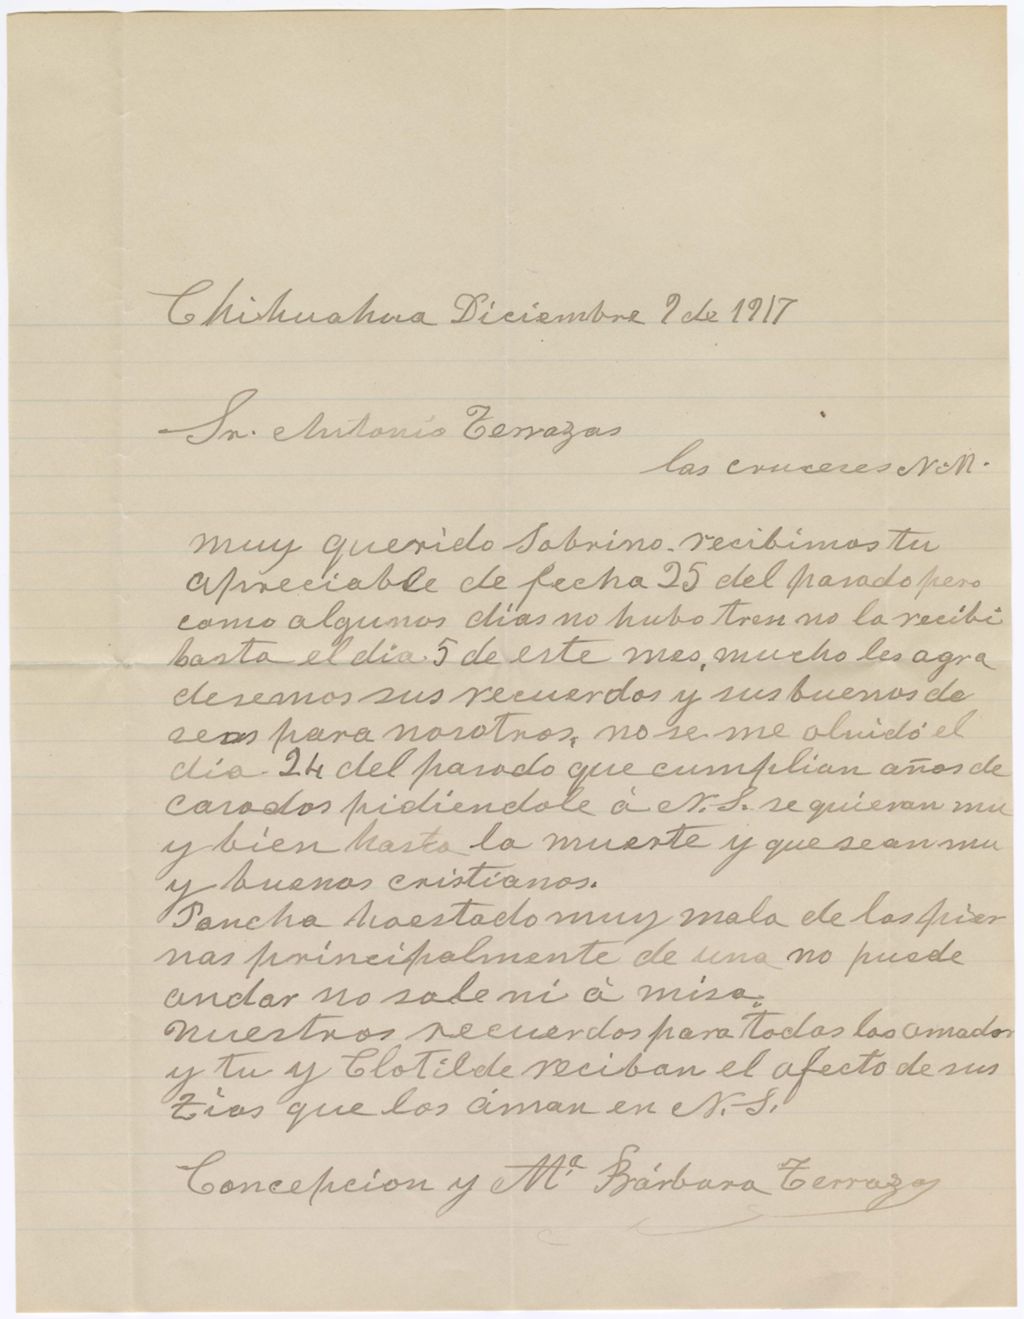 Chihuahua Diciembre 9 de 1917
Sr. Antonio Terrazas
las cruceses N.M.
muy querido Sobrino. recibimos tu
apreciable de fecha 25 del pasado pero
como algunos dias no hubo tren no la recibi
hasta el dia 5 de este mes, mucho les agra
desemos sus recuerdos y sus buenos de
seos para nosotros, no se me olvidó el
dia 24 del pasado que cumplian años de
casados pidiendole á N.S. se quieran mu
y bien hasta la muerte y que sean mu
y buenos cristianos.
Pancha ha estado muy mala de las pier
nas principalmente de una no puede
andar no sale ni á misa.
Nuestros recuerdos para todos los amador
y tu y Clotilde reciban el afecto de sus
Tias que los áman en N.S.
Concepcion y Ma. Bárbara Terrazas